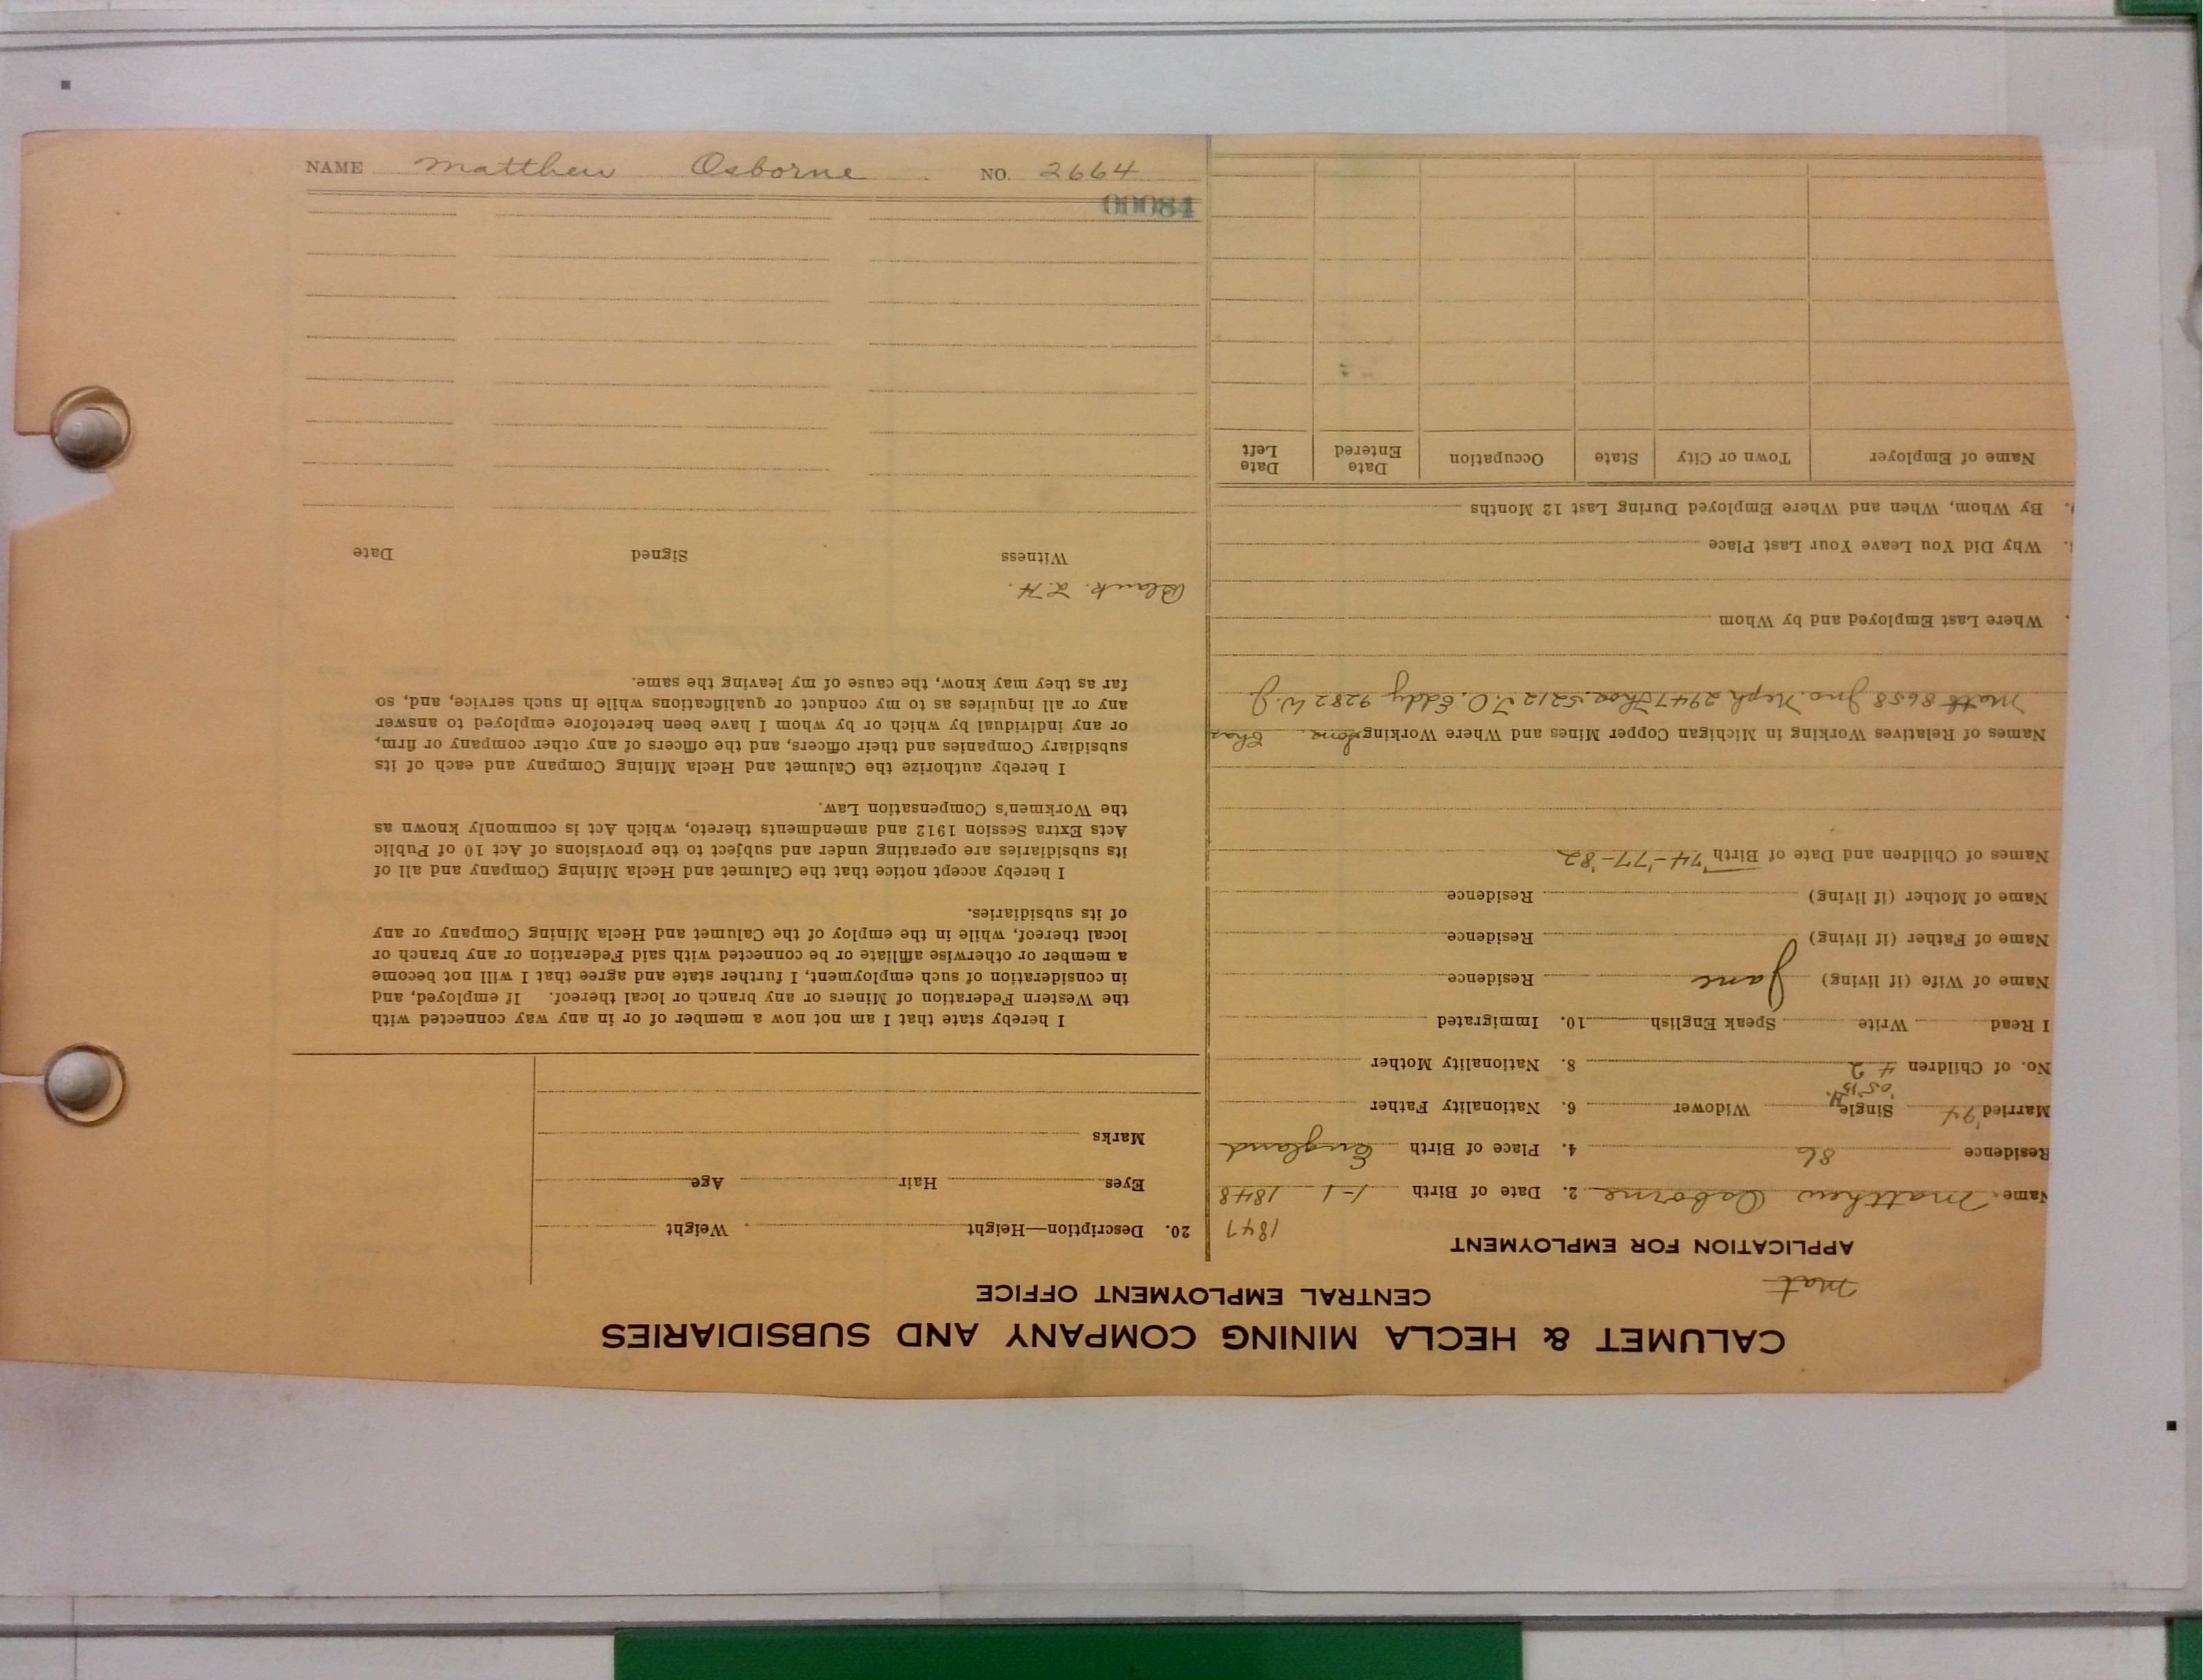 CALUMET & HECLA MINING COMPANY AND SUBSIDIARIES
CENTRAL EMPLOYMENT OFFICE
Mat
APPLICATION FOR EMPLOYMENT
1847
Name Matthew Osborne 2. Date of Birth 1-1 1848
Residence 86 4. Place of Birth England
Married '94 Single Widower 6. Nationality Father
'05 '15
No. of Children 4 2 8. Nationality Mother
I Read Write Speak English 10. Immigrated
Name of Wife (if living) Jane Residence
Name of Father (if living) Residence
Name of Mother (if living) Residence
Names of Children and Date of Birth '74-'77-'82
Names of Relatives Working in Michigan Copper Mines and Where Working Sons. Chas
Matt 8658 Jno. Neph 2947 Thos. 5212 T.O. Eddy 9282 W.J.
Where Last Employed and by Whom
Why Did You Leave Your Last Place
By Whom, When and Where Employed During Last 12 Months
Name of Employer Town or City State Occupation Date Entered Date Left
20. Description—Height Weight
Eyes Hair Age
Marks
I hereby state that I am not now a member of or in any way connected with
the Western Federation of Miners or any branch or local thereof. If employed, and
in consideration of such employment, I further state and agree that I will not become
a member or otherwise affiliate or be connected with said Federation or any branch or
local thereof, while in the employ of the Calumet and Hecla Mining Company or any
of its subsidiaries.
I hereby accept notice that the Calumet and Hecla Mining Company and all of
its subsidiaries are operating under and subject to the provisions of Act 10 of Public
Acts Extra Session 1912 and amendments thereto, which Act is commonly known as
the Workmen's Compensation Law.
I hereby authorize the Calumet and Hecla Mining Company and each of its
subsidiary Companies and their officers, and the officers of any other company or firm,
or any individual by which or by whom I have been heretofore employed to answer
any or all inquiries as to my conduct or qualifications while in such service, and, so
far as they may know, the cause of my leaving the same.
Blank. L.H.
Witness Signed Date
00084
NAME Matthew Osborne NO. 2664